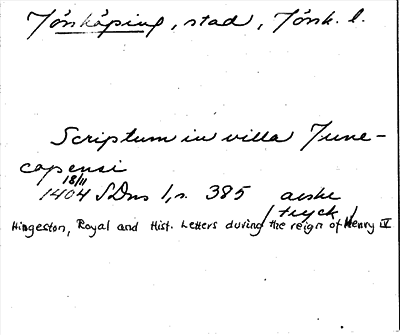 Jönköping, stad, Jönk. l.
Scriptum in villa June-
copensi
18/11
1404 SDns 1, s. 385 avskr
/tryck/
Hingeston, Royal and Hist. Letters during the reign of Henry IV